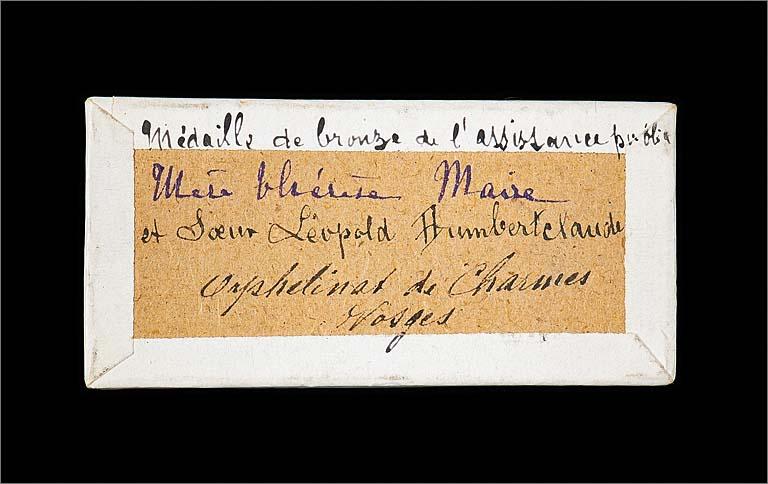 Médaille de bronze de l'assistance publi
Mère thérèse Maire
et Sœur Léopold Humbertclaude
Orphelinat de Charmes
Vosges